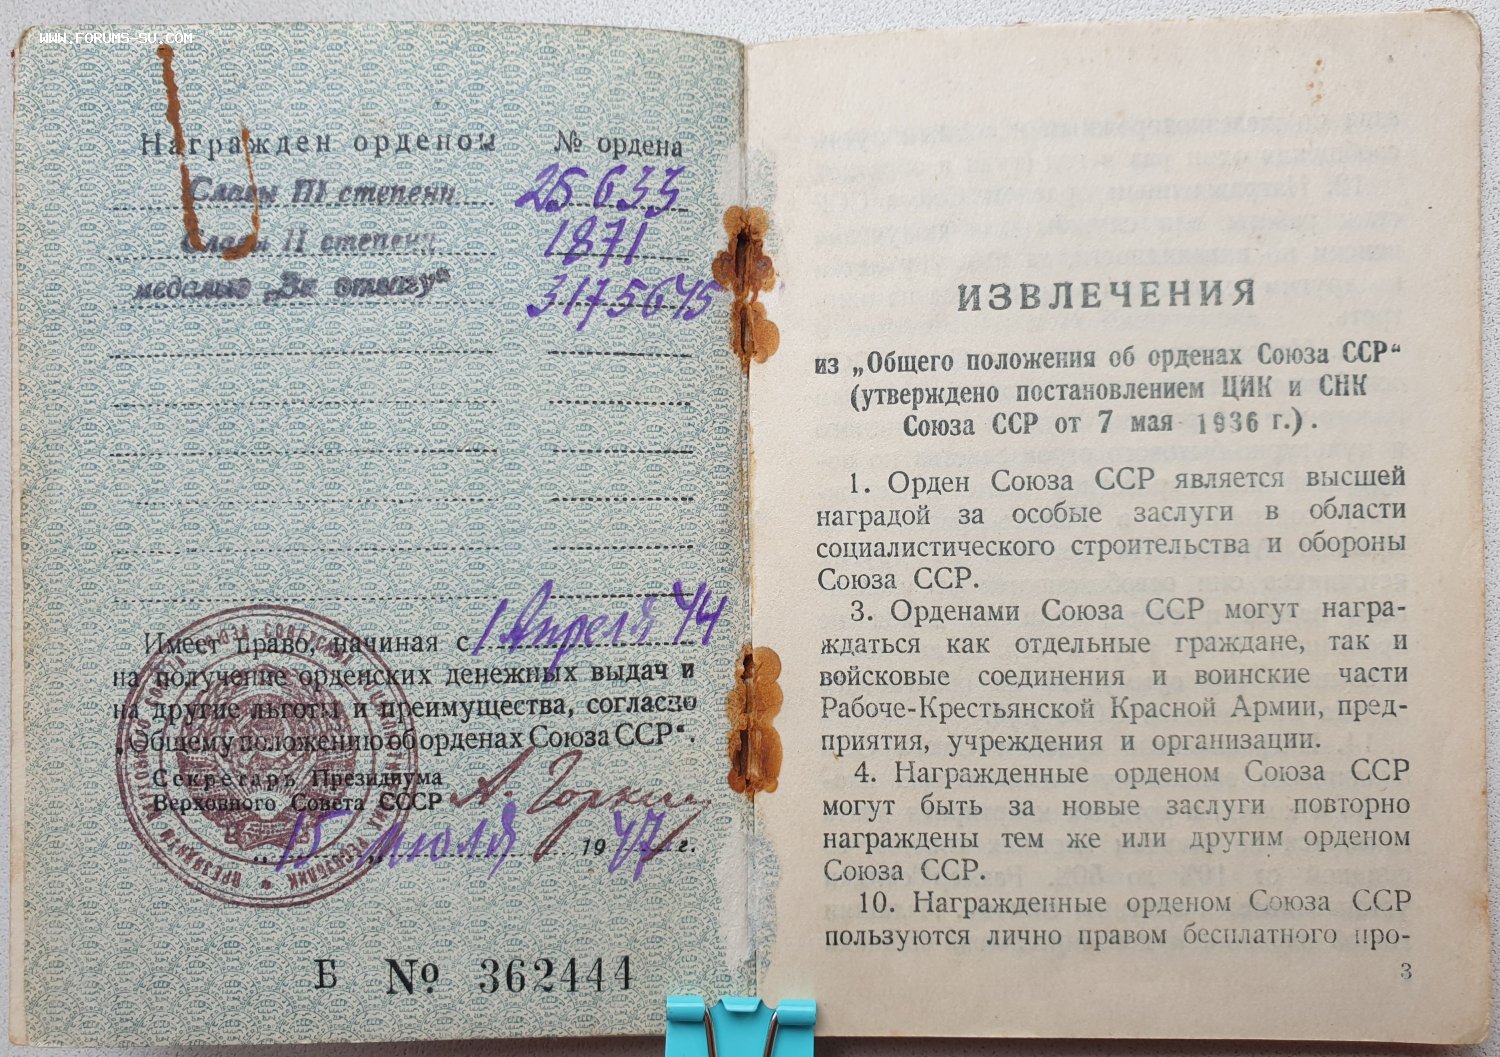 WWW.FORUMS-SU.COM
Награжден орденом № ордена
Славы III степени 25633
Славы II степени 1871
медалью „За отвагу“ 3175645
Имеет право, начиная с 1 Апреля 44
на получение орденских денежных выдач и
на другие льготы и преимущества, согласно
„Общему положению об орденах Союза ССР“.
Секретарь Президиума
Верховного Совета СССР А. Горкин
„15“ июля 1947 г.
Б № 362444
ИЗВЛЕЧЕНИЯ
из „Общего положения об орденах Союза ССР“
(утверждено постановлением ЦИК и СНК
Союза ССР от 7 мая 1936 г.).
1. Орден Союза ССР является высшей
наградой за особые заслуги в области
социалистического строительства и обороны
Союза ССР.
3. Орденами Союза ССР могут награ-
ждаться как отдельные граждане, так и
войсковые соединения и воинские части
Рабоче-Крестьянской Красной Армии, пред-
приятия, учреждения и организации.
4. Награжденные орденом Союза ССР
могут быть за новые заслуги повторно
награждены тем же или другим орденом
Союза ССР.
10. Награжденные орденом Союза ССР
пользуются лично правом бесплатного про-
3